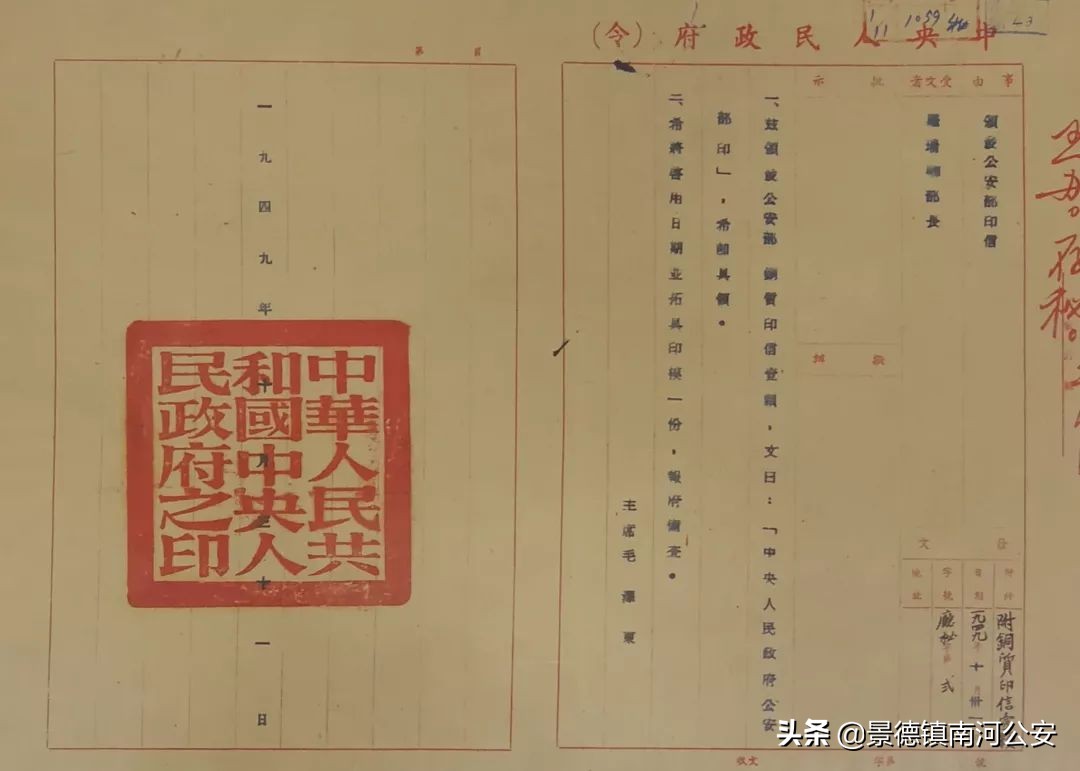 中央人民政府（令）
事由
頒發公安部印信
受文者
羅瑞卿部長
批示
擬辦
發文
附件
附銅質印信壹
日期
一九四九年十月卅一
字號
廳秘字第 弍
地址
一、茲頒發公安部 銅質印信壹顆，文曰：「中央人民政府公安
部印」，希卽具領。
二、希將啓用日期並拓具印模一份，報府備查。
主席毛澤東
一九四九年十月三十一日
中華人民共
和國中央人
民政府之印
收文 字第 號
头条 @景德镇南河公安